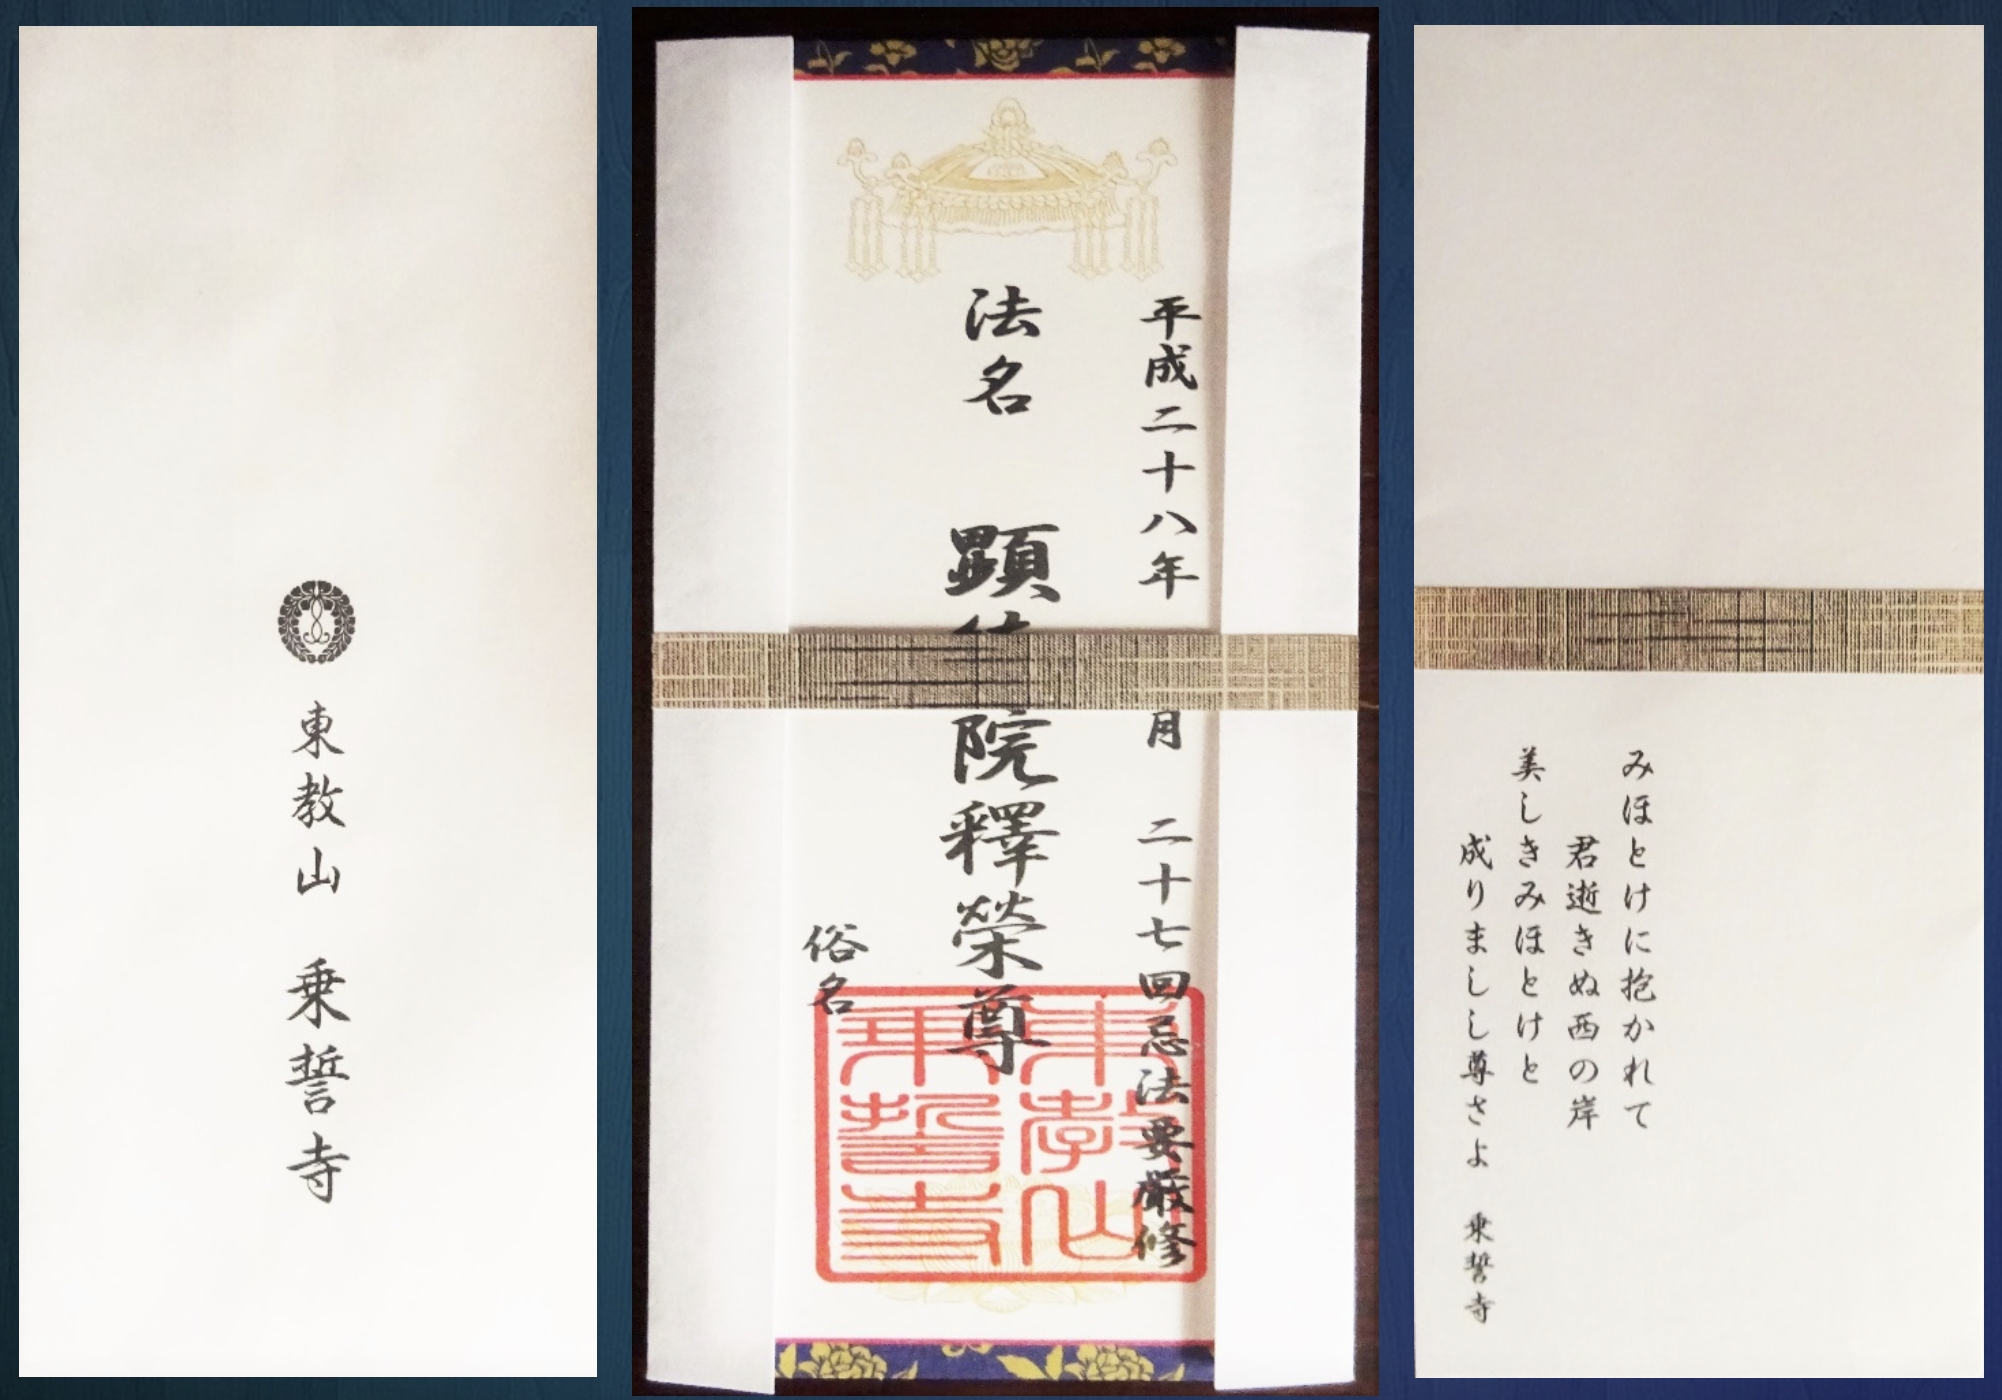 東教山 乗誓寺
平成二十八年 月 二十七回忌法要厳修
法名 顕 院釋榮尊
俗名
東教山
乗誓寺
みほとけに抱かれて
君逝きぬ西の岸
美しきみほとけと
成りましし尊さよ 乗誓寺